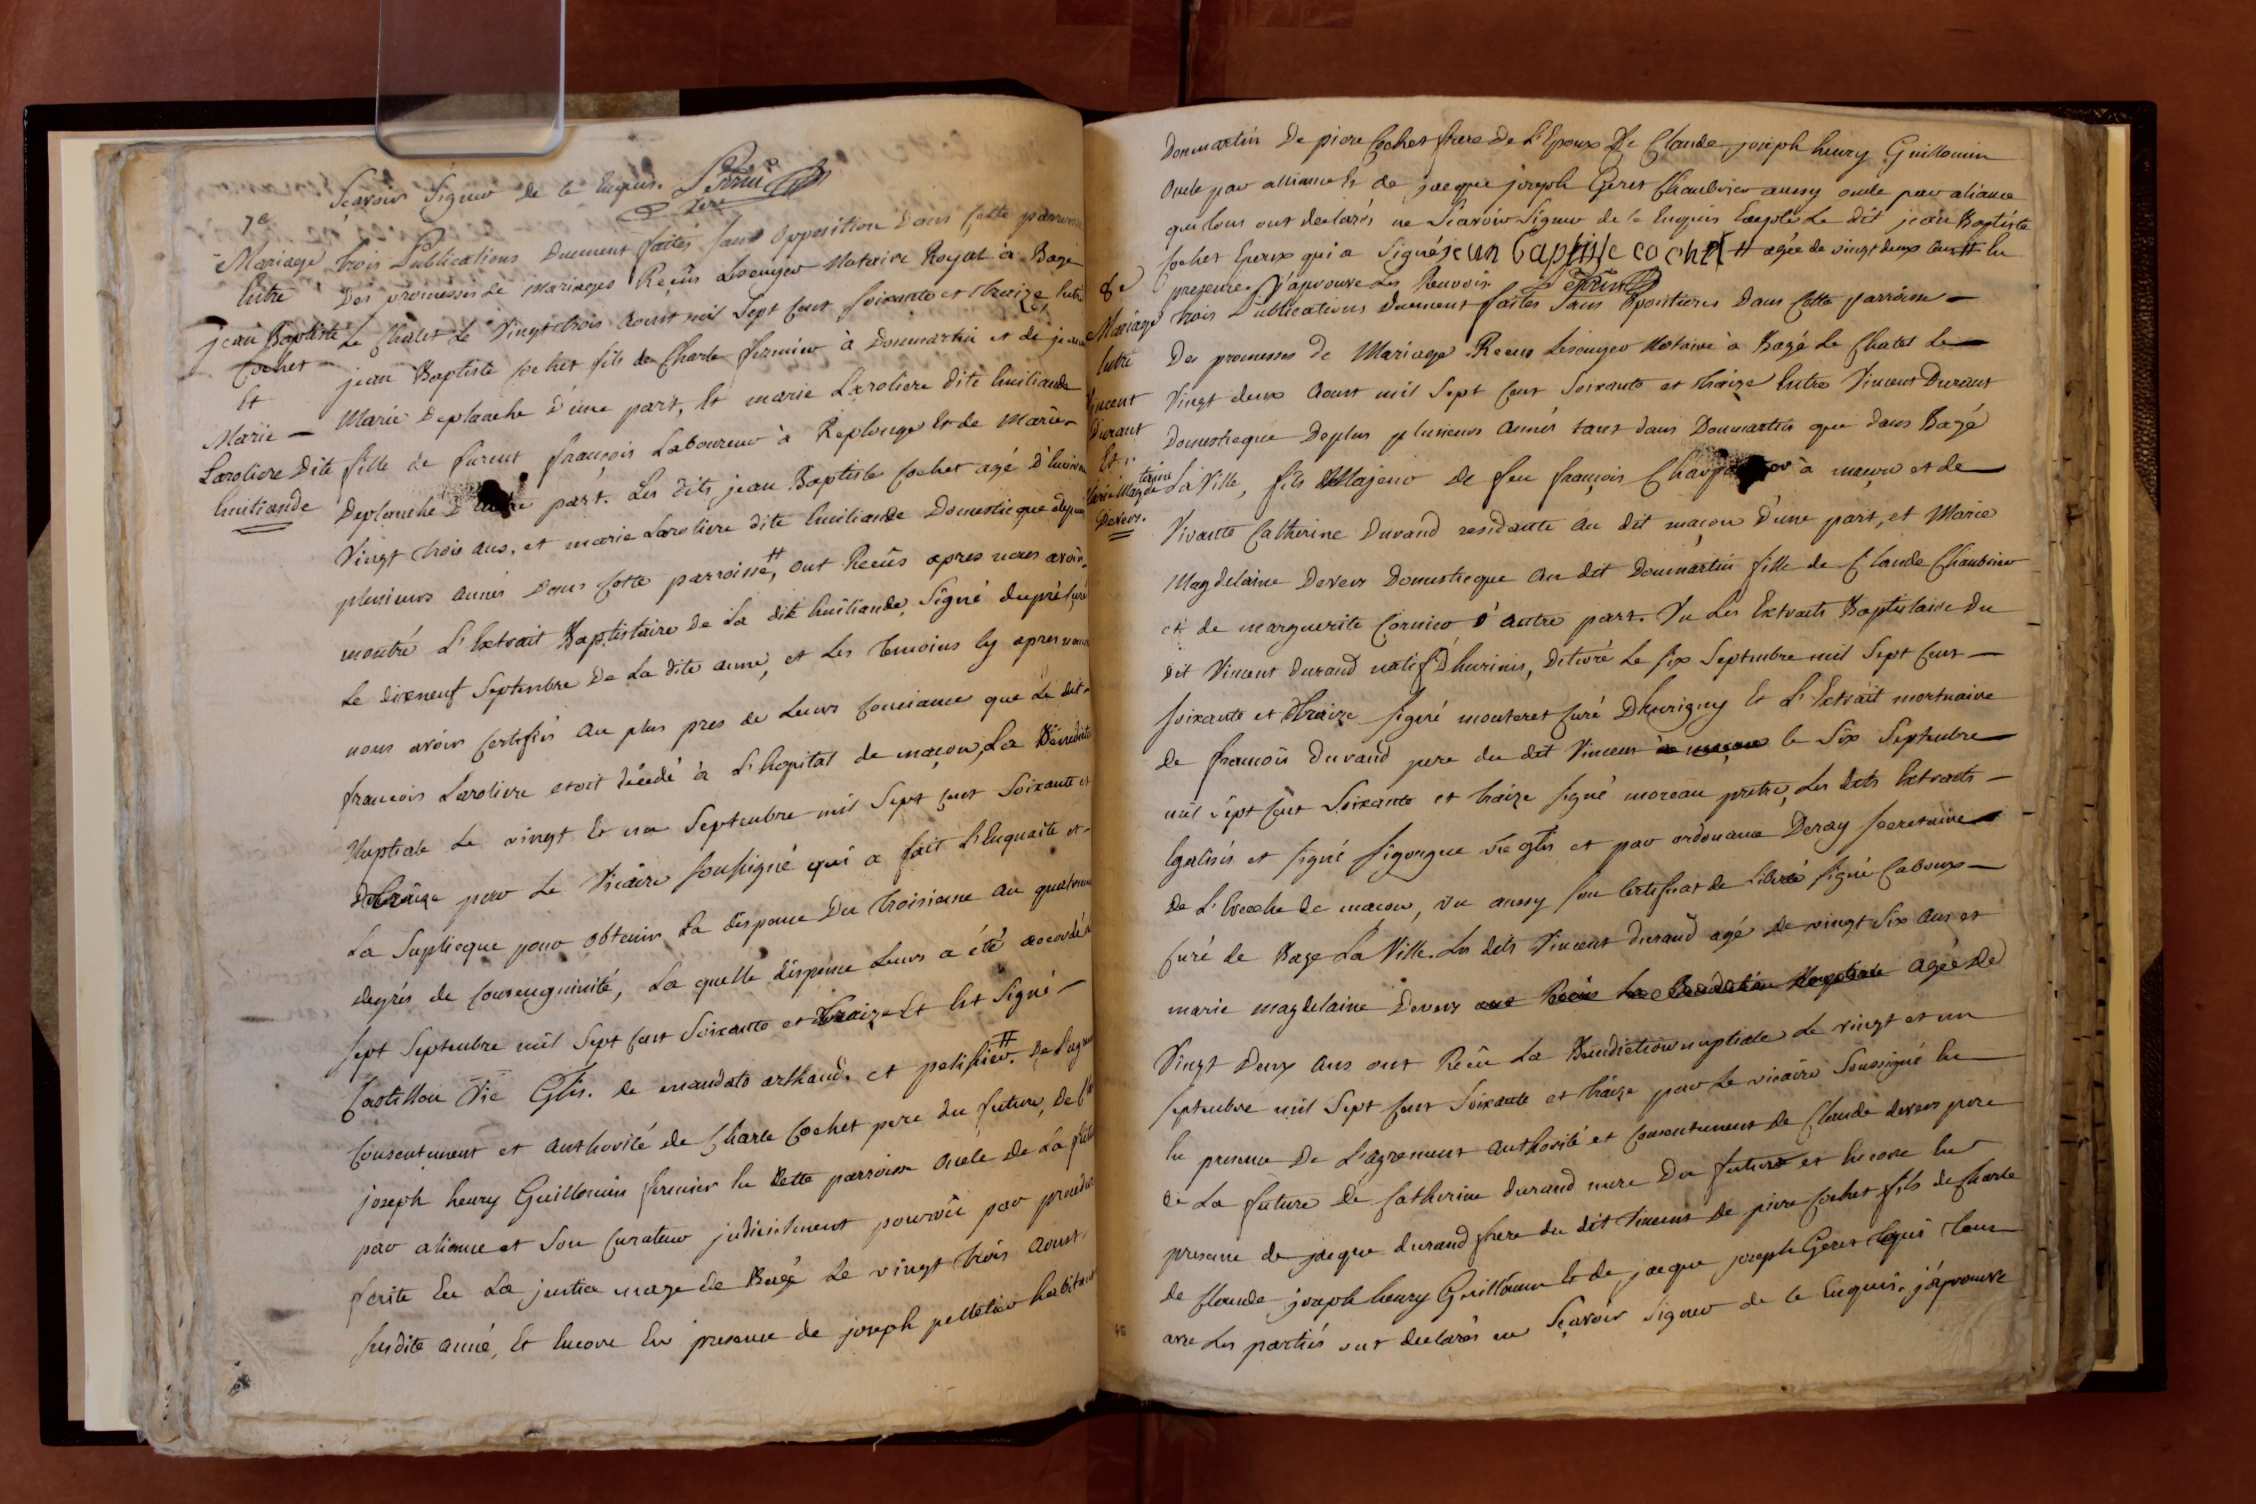 Scavoir Signer de ce Enquis. Perrin
vicre
7e
Mariage
Entre
jean Baptiste
Cochet
Et
Marie —
Laroliere Dite
Emiliande
Trois Publications Duement faites sans opposition Dans Cette parroisse
Des promesses de mariages Reçûs Lescuyer Notaire Royal à Bagé
Le Chatet Le Vingt trois Aoust mil Sept Cent soixante et traize Entre
jean Baptiste Cochet fils de Charle fermier à Donmartin et de
Marie Deplanche D'une part, Et marie Laroliere dite Emiliande
fille de furent françois Laboureur à Replonge Et de Marie
Deplanche D'autre part. Les dits jean Baptiste Cochet agé D'Environ
Vingt trois ans, et marie Laroliere dite Emiliande Domesticque depuis
plusieurs années Dans Cette parroisse #, ont Reçûs apres nous avoir
montré L'Extrait Baptistaire de La dite Emiliande, Signé dupré Curé
Le dixneuf Septembre De La dite année, et Les temoins cy apres nommés
nous avoir Certifiés Au plus pres de Leurs Consiance que Le dit
francois Laroliere etoit décédé à L'hopital de maçon, La Bénediction
Nuptiale Le vingt Et un Septembre mil Sept Cent Soixante et
traize par Le Vicaire soussigné qui a fait L'Enquaite et
La Suplicque pour obtenir La dispence Du troisieme Au quatrieme
degrés de Consenguinité, La quelle dispence Leurs a été accordée le
sept Septembre mil Sept Cent Soixante et traize Et Est Signé —
Castillon Vic Glis. de mandato arthaud. et petitfier. # De L'agrement
Consentement et Authorité de Charle Cochet pere du futur, De
joseph henry Guillomin fermier En Cette parroisse Oncle de La future
par aliance et Son Curateur judicielment pourvû par procedure
fcrite En La justice mage de Bagé Le vingt trois Aoust
susdite année, Et Encore En presence de joseph pelletier habitant
Donmartin De piere Cochet frere De L'Epoux De Claude joseph henry Guillomin
Oncle par alliance Et de jacque joseph Geret Chanbrier aussy oncle par aliance
qui tous ont declarés ne Scavoir Signer de ce Enquis Excepté Le dit jean Baptiste
Cochet Epoux qui a Signé jean baptiste cochet # agée de vingt deux ans # En
presence. J'aprouve Les Renvois. Perrin
8e
Mariage
Entre
Vincent
Durant
Et
Marie Magdelaine
Devers.
Trois Publications Duement faites Sans Opositions Dans Cette parroisse —
Des promesses De Mariage Recus Lescuyer Notaire à Bagé Le Chatet Le —
Vingt deux Aoust mil Sept Cent Soixante et traize Entre Vincent Durant
Domesticque Deplus plusieurs Années tant dans Donmartin que dans Bagé
La Ville, fils Majeur De feu françois à macon et de —
Vivante Catherine Durand residante Au dit maçon D'une part, et Marie
Magdelaine Devers Domesticque Au dit Donmartin fille de Claude Chanbrier
et de marguerite Cornier D'Autre part. Vu Les Extraits Baptistaire du
dit Vincent Durand natif D'hurinis, Délivré Le six Septembre mil Sept Cent —
soixante et traize signé monteret Curé D'hurigny Et L'Extrait mortuaire
De François Durand pere du dit Vincent à maçon le Six Septembre —
mil Sept Cent Soixante et traize Signé moreau pretre, Les Dits Extraits —
legalisés et signé Sigorgne vic glis et par ordonance Deray Secretaire
De L'Eveche de macon, Vu aussy Son Certificat de Liberté signé Caboux —
Curé de Bage La Ville. Les dits Vincent Durand agé de vingt Six ans et
marie magdelaine Devers ont Recus La Benediction Nuptiale agée De
Vingt Deux Ans ont Recu La Benediction nuptiale Le vingt et un
Septembre mil Sept Cent Soixante et traize par Le vicaire Soussigné En
En presence De L'agrement Authorité et Consentement De Claude devers pere
de La future De Catherine Durand mere Du futur et Encore En
presence de jacque Durand frere du dit Vincent De piere Cochet fils de Charle
De Claude joseph henry Guillomin Et de jacque joseph Geret tous
avec Les parties ont declarés ne Scavoir Signer de ce Enquis. j'aprouve